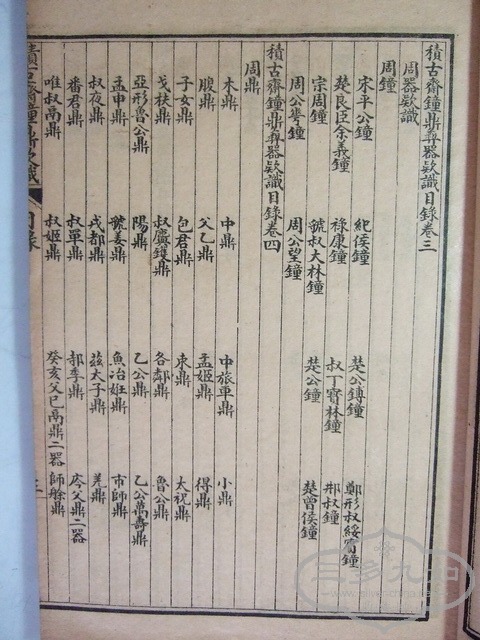 積古齋鐘鼎彝器欵識目錄卷三
周器欵識
周鐘
宋平公鐘 紀侯鐘 楚公鎛鐘 鄭邢叔綏賓鐘
楚良臣余義鐘 祿康鐘 叔丁寶林鐘 邢叔鐘
宗周鐘 虢叔大林鐘 楚公鐘 楚曾侯鐘
周公鐘 周公望鐘
積古齋鐘鼎彝器欵識目錄卷四
周鼎
木鼎 中鼎 中旅車鼎 小鼎
腹鼎 父乙鼎 孟姬鼎 得鼎
子女鼎 包君鼎 束鼎 大祝鼎
戈扶鼎 叔鑊鼎 各鄰鼎 魯公鼎
亞形魯公鼎 陽鼎 乙公鼎 乙公萬壽鼎
孟申鼎 虢姜鼎 魚冶妊鼎 市師鼎
叔夜鼎 戎都鼎 茲太子鼎 羌鼎
番君鼎 叔單鼎 郝季鼎 岑父鼎二器
唯叔鬲鼎 叔姬鼎 癸亥父己鬲鼎二器 師艅鼎
積古齋鐘鼎欵識 目錄
三多九如